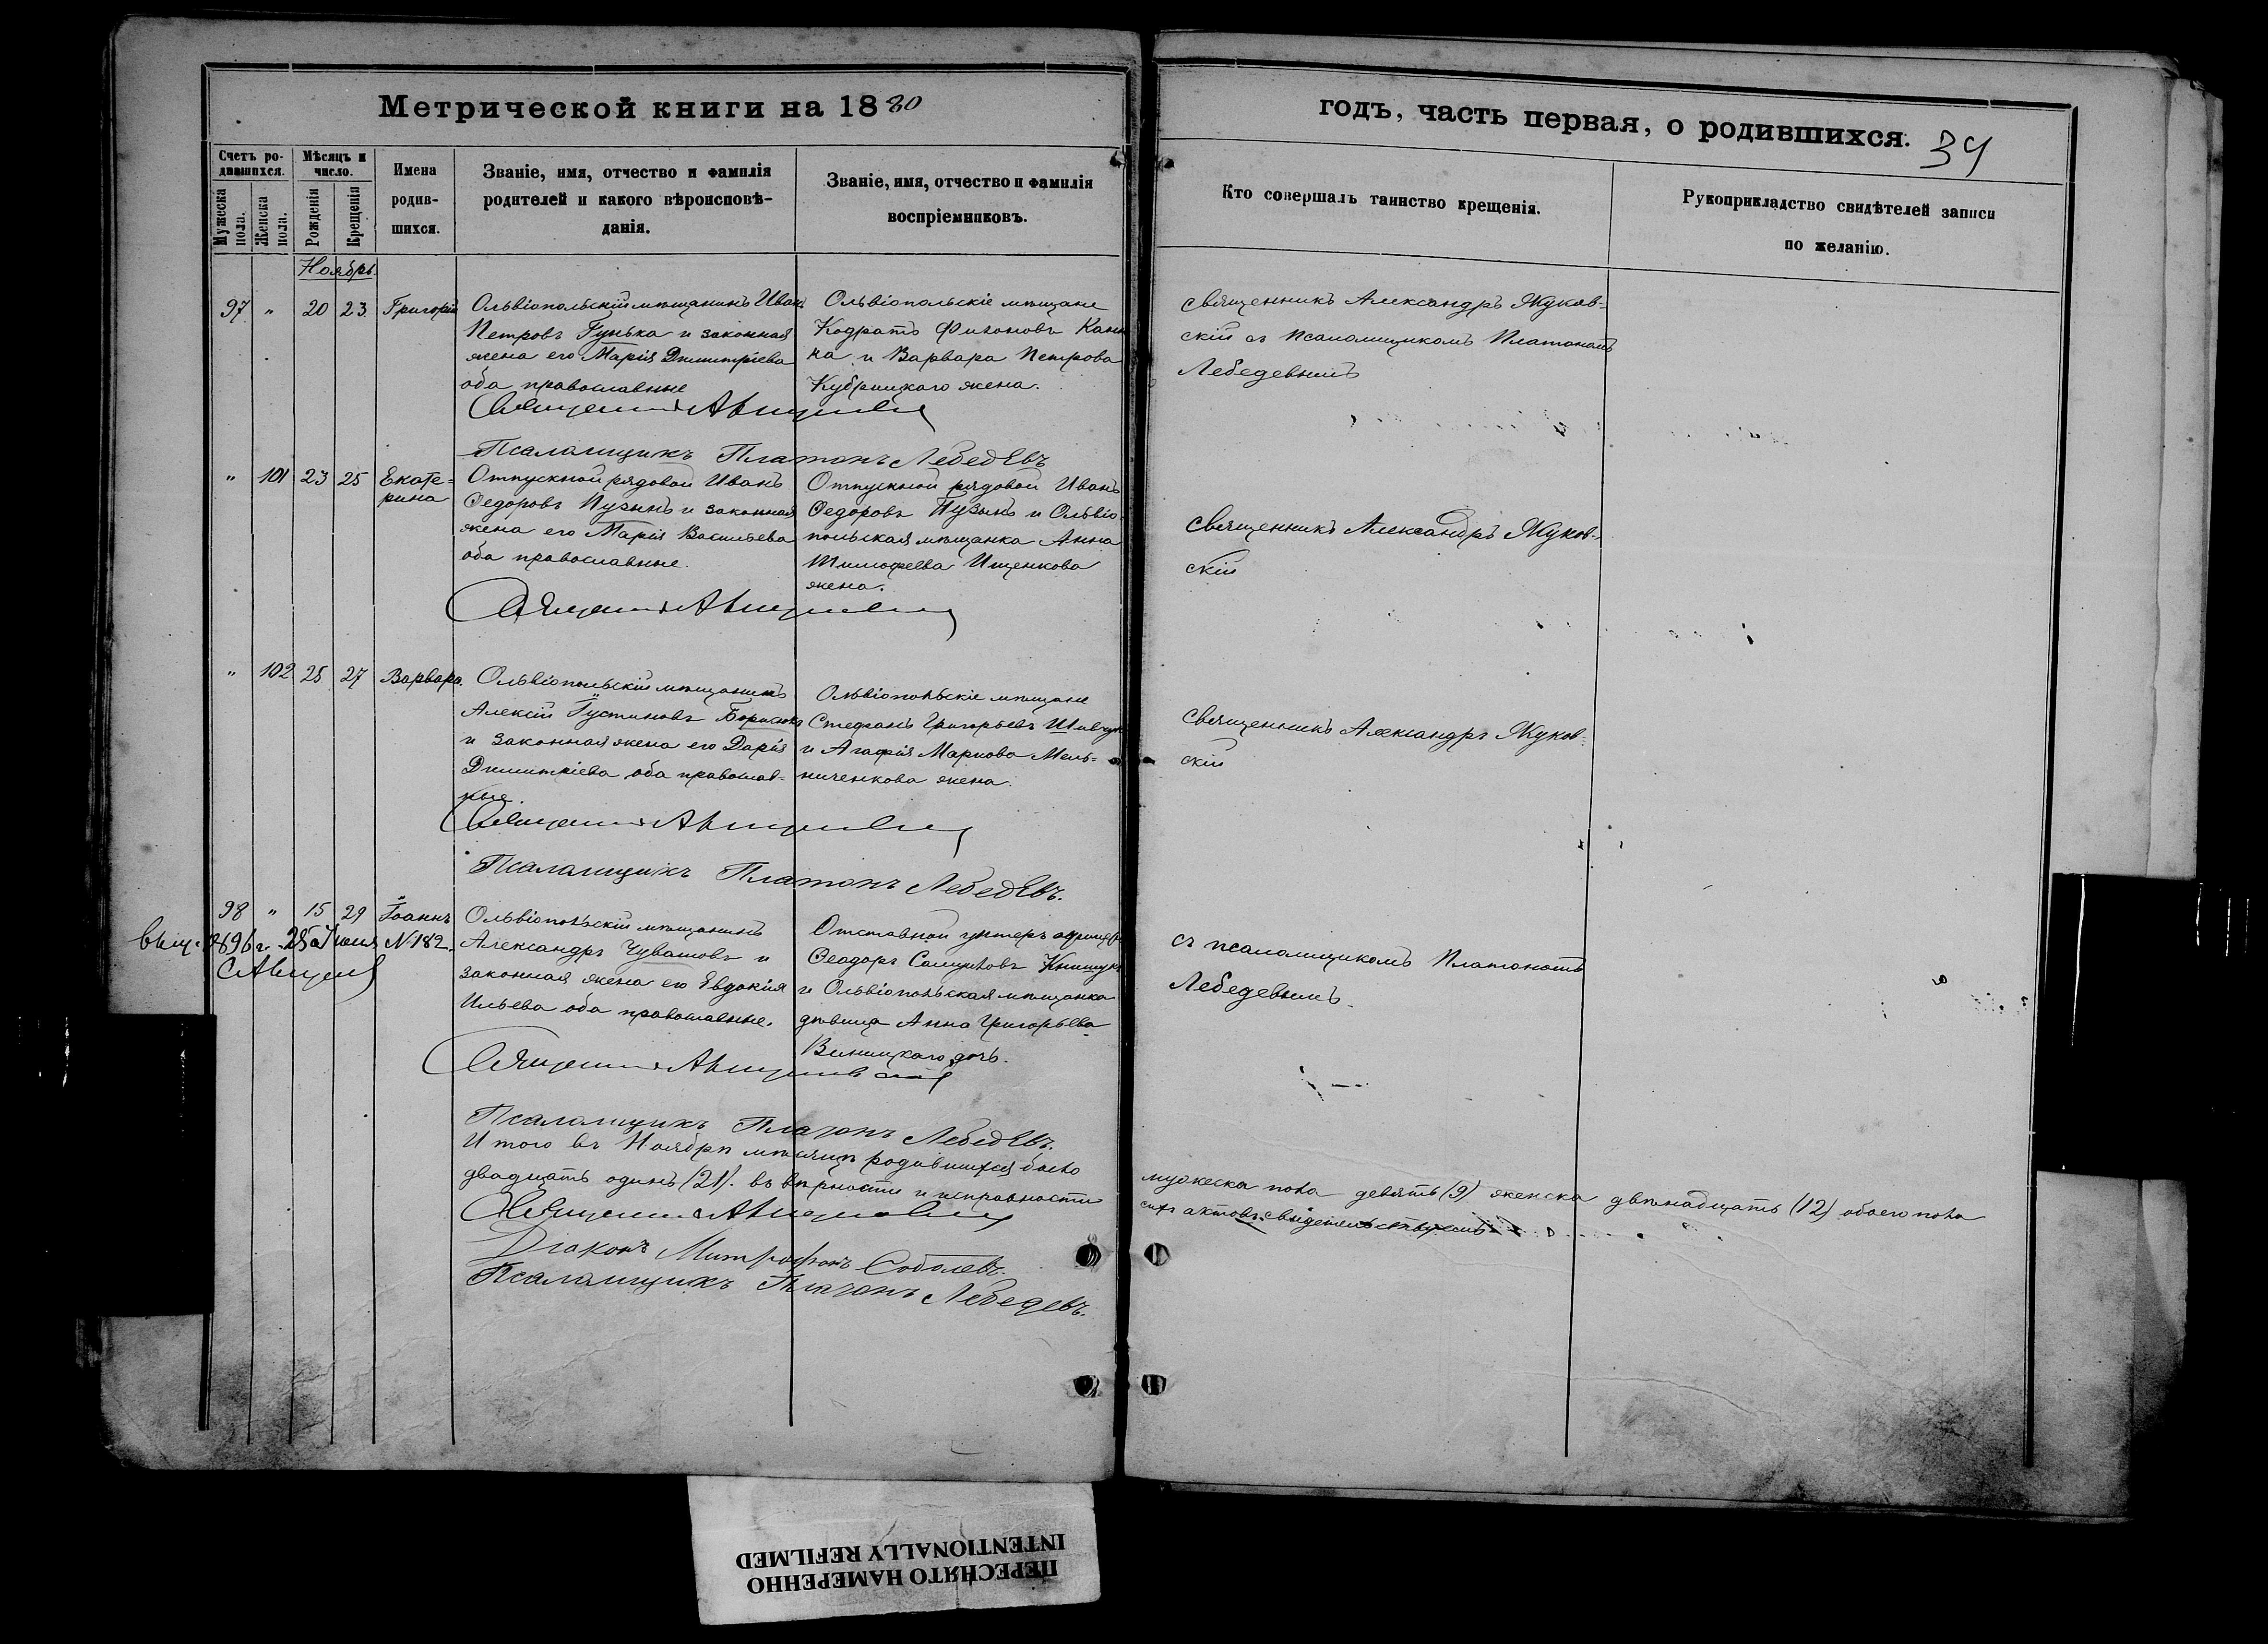 Метрической книги на 1880
годъ, часть первая, о родившихся.
34
Счетъ ро-
дившихся.
Мужеска
пола.
Женска
пола.
Мѣсяцъ и
число.
Рожденія
Крещенія
Имена
родив-
шихся.
Званіе, имя, отчество и фамилія
родителей и какого вѣроисповѣ-
данія.
Званіе, имя, отчество и фамилія
воспріемниковъ.
Кто совершалъ таинство крещенія.
Рукоприкладство свидѣтелей записи
по желанію.
Ноябрь.
97 " 20 23 Григорій
Ольвіопольскій мѣщанинъ Иванъ
Петровъ Гунька и законная
жена его Марія Димитріева
оба православные
Ольвіопольскіе мѣщане
Кодратъ
на и Варвара Петрова
Кубрицкаго жена.
Священникъ Александръ Жуков-
скій съ Псаломщикомъ Платономъ
Лебедевымъ
Священникъ
Псаломщикъ Платонъ Лебедевъ
" 101 23 25 Екате-
рина
Отпускной рядовой Иванъ
Федоровъ Пузынъ и законная
жена его Марія Васильева
оба православные.
Отпускной рядовой Иванъ
Федоровъ Пузынъ и Ольвіо-
польская мѣщанка Анна
Тимофеева Ищенкова
жена.
Священникъ Александръ Жуков-
скій
Священникъ
" 102 25 27 Варвара.
Ольвіопольскій мѣщанинъ
Алексій Іустиновъ
и законная жена его Дарія
Димитріева оба православ-
ные.
Ольвіопольскіе мѣщане
Стефанъ Григорьевъ
и Агафія Маркова Мель-
ниченкова жена.
Священникъ Александръ Жуков-
скій
Священникъ
Псаломщикъ Платонъ Лебедевъ.
98 " 15 29 Іоаннъ
выд. 1896 г. 28 Іюня №182.
Ольвіопольскій мѣщанинъ
Александръ Чуватовъ и
законная жена его Евдокія
Ильева оба православные.
Отставной унтеръ офицеръ
Феодоръ Самуиловъ
и Ольвіопольская мѣщанка
дѣвица Анна Григорьева
Виницкаго дочь.
съ псаломщикомъ Платономъ
Лебедевымъ.
Священникъ
Псаломщикъ Платонъ Лебедевъ.
Итого въ Ноябрѣ мѣсяцѣ родившихся было мужеска пола девять (9) женска двѣнадцать (12) обоего пола
двадцать одинъ (21). въ вѣрности и исправности сихъ актовъ свидетельствуемъ
Священникъ
Діаконъ Митрофанъ Соболевъ.
Псаломщикъ Платонъ Лебедевъ.
ПЕРЕСНЯТО НАМЕРЕННО
INTENTIONALLY REFILMED